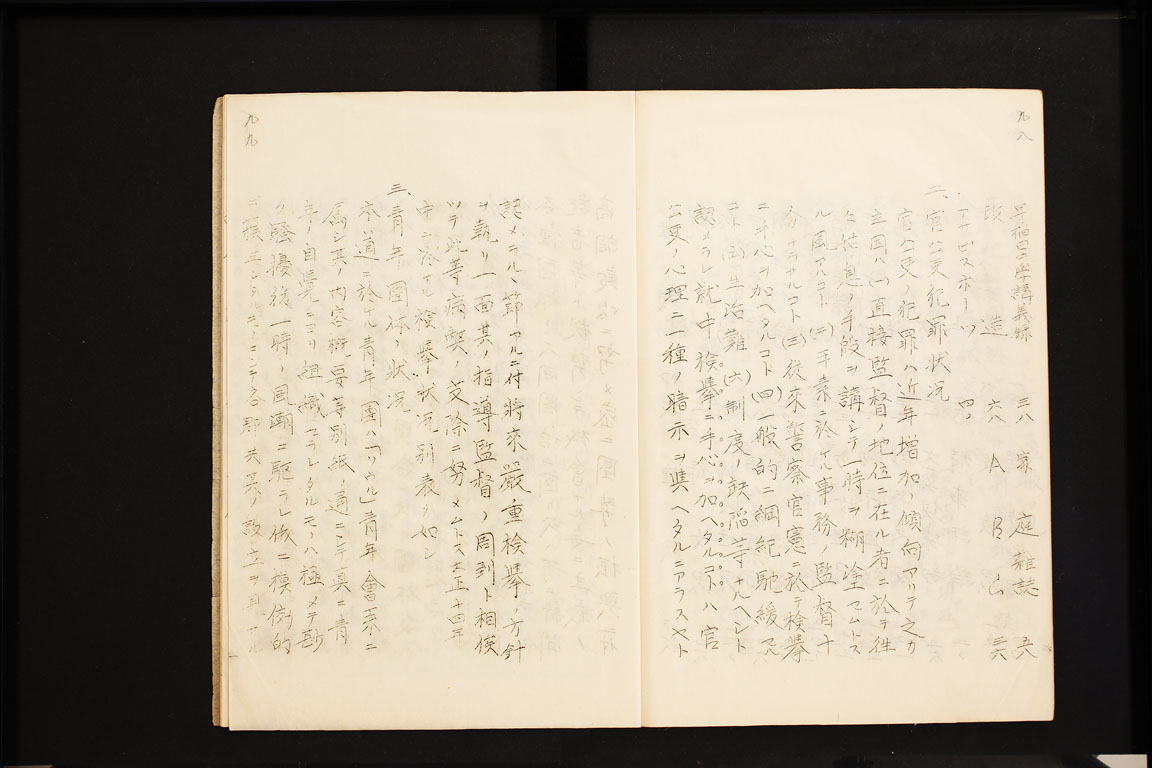 九八
早稲田大學講義録 三八 家庭雑誌 五八
改造 六八 ABC 三六
アサヒスホーツ 四〇
二、官公吏犯罪状况
官公吏ノ犯罪ハ近年増加ノ傾向アリテ之カ
主因ハ(一)直接監督ノ地位ニ在ル者ニ於テ往
々姑息ノ手段ヲ講シテ一時ヲ糊塗セムトス
ル風アルコト(二)平素ニ於ケル事務ノ監督十
分ナラサルコト(三)從來警察官憲ニ於テ檢擧
ニ手心ヲ加ヘタルコト(四)一般的ニ綱紀弛緩セル
コト(五)生活難(六)制度ノ缺陷等ナルヘシト
認メラレ就中檢擧ニ手心ヲ加ヘタルコトハ官
公吏ノ心理ニ一種ノ暗示ヲ與ヘタルニアラスヤト
九九
認メラルヽ節アルニ付將來嚴重檢擧ノ方針
ヲ執リ一面其ノ指導監督ノ周到ト相俟
ツテ此等病弊ノ芟除ニ努メムトス大正十四年
中ニ於ケル檢擧状况別表ノ如シ
三、青年團体ノ状况
本道ニ於ケル青年團ハ「ソウル」青年會系ニ
属シ其ノ内容概要等別紙ノ通ニシテ真ニ青
年ノ自覺ニヨリ組織セラレタルモノハ極メテ尠
ク騒擾後一時ノ風潮ニ驅ラレ做ニ模倣的
ニ簇立シタルモノニシテ各郡共其ノ設立ヲ見サル